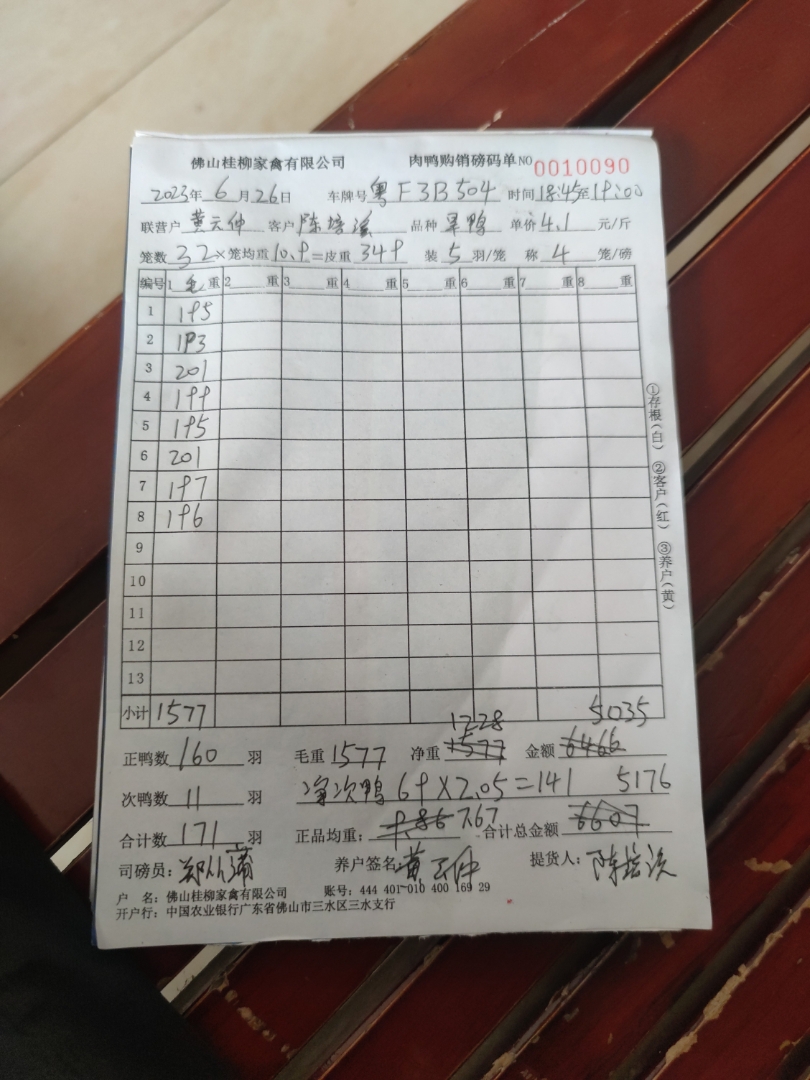 佛山桂柳家禽有限公司 肉鸭购销磅码单NO 0010090
2023年6月26日 车牌号 粤F3B504 时间18:45至19:00
联营户 黄云仲 客户 陈培 品种 旱鸭 单价4.1 元/斤
笼数 32 ×笼均重10.9=皮重 349 装 5 羽/笼 称 4 笼/磅
编号 1 毛 重 2 重 3 重 4 重 5 重 6 重 7 重 8 重
1 195
2 193
3 201
4 199
5 195
6 201
7 197
8 196
9
10
11
12
13
小计 1577
1228 5035
正鸭数 160 羽 毛重 1577 净重 1577 金额 6466
次鸭数 11 羽 净次鸭 69×2.05=141 5176
合计数 171 羽 正品均重: 9.86 7.67 合计总金额 6607
司磅员: 郑 养户签名 黄云仲 提货人: 陈培
户 名: 佛山桂柳家禽有限公司 账号: 444 401 010 400 169 29
开户行: 中国农业银行广东省佛山市三水区三水支行
①存根(白) ②客户(红) ③养户(黄)